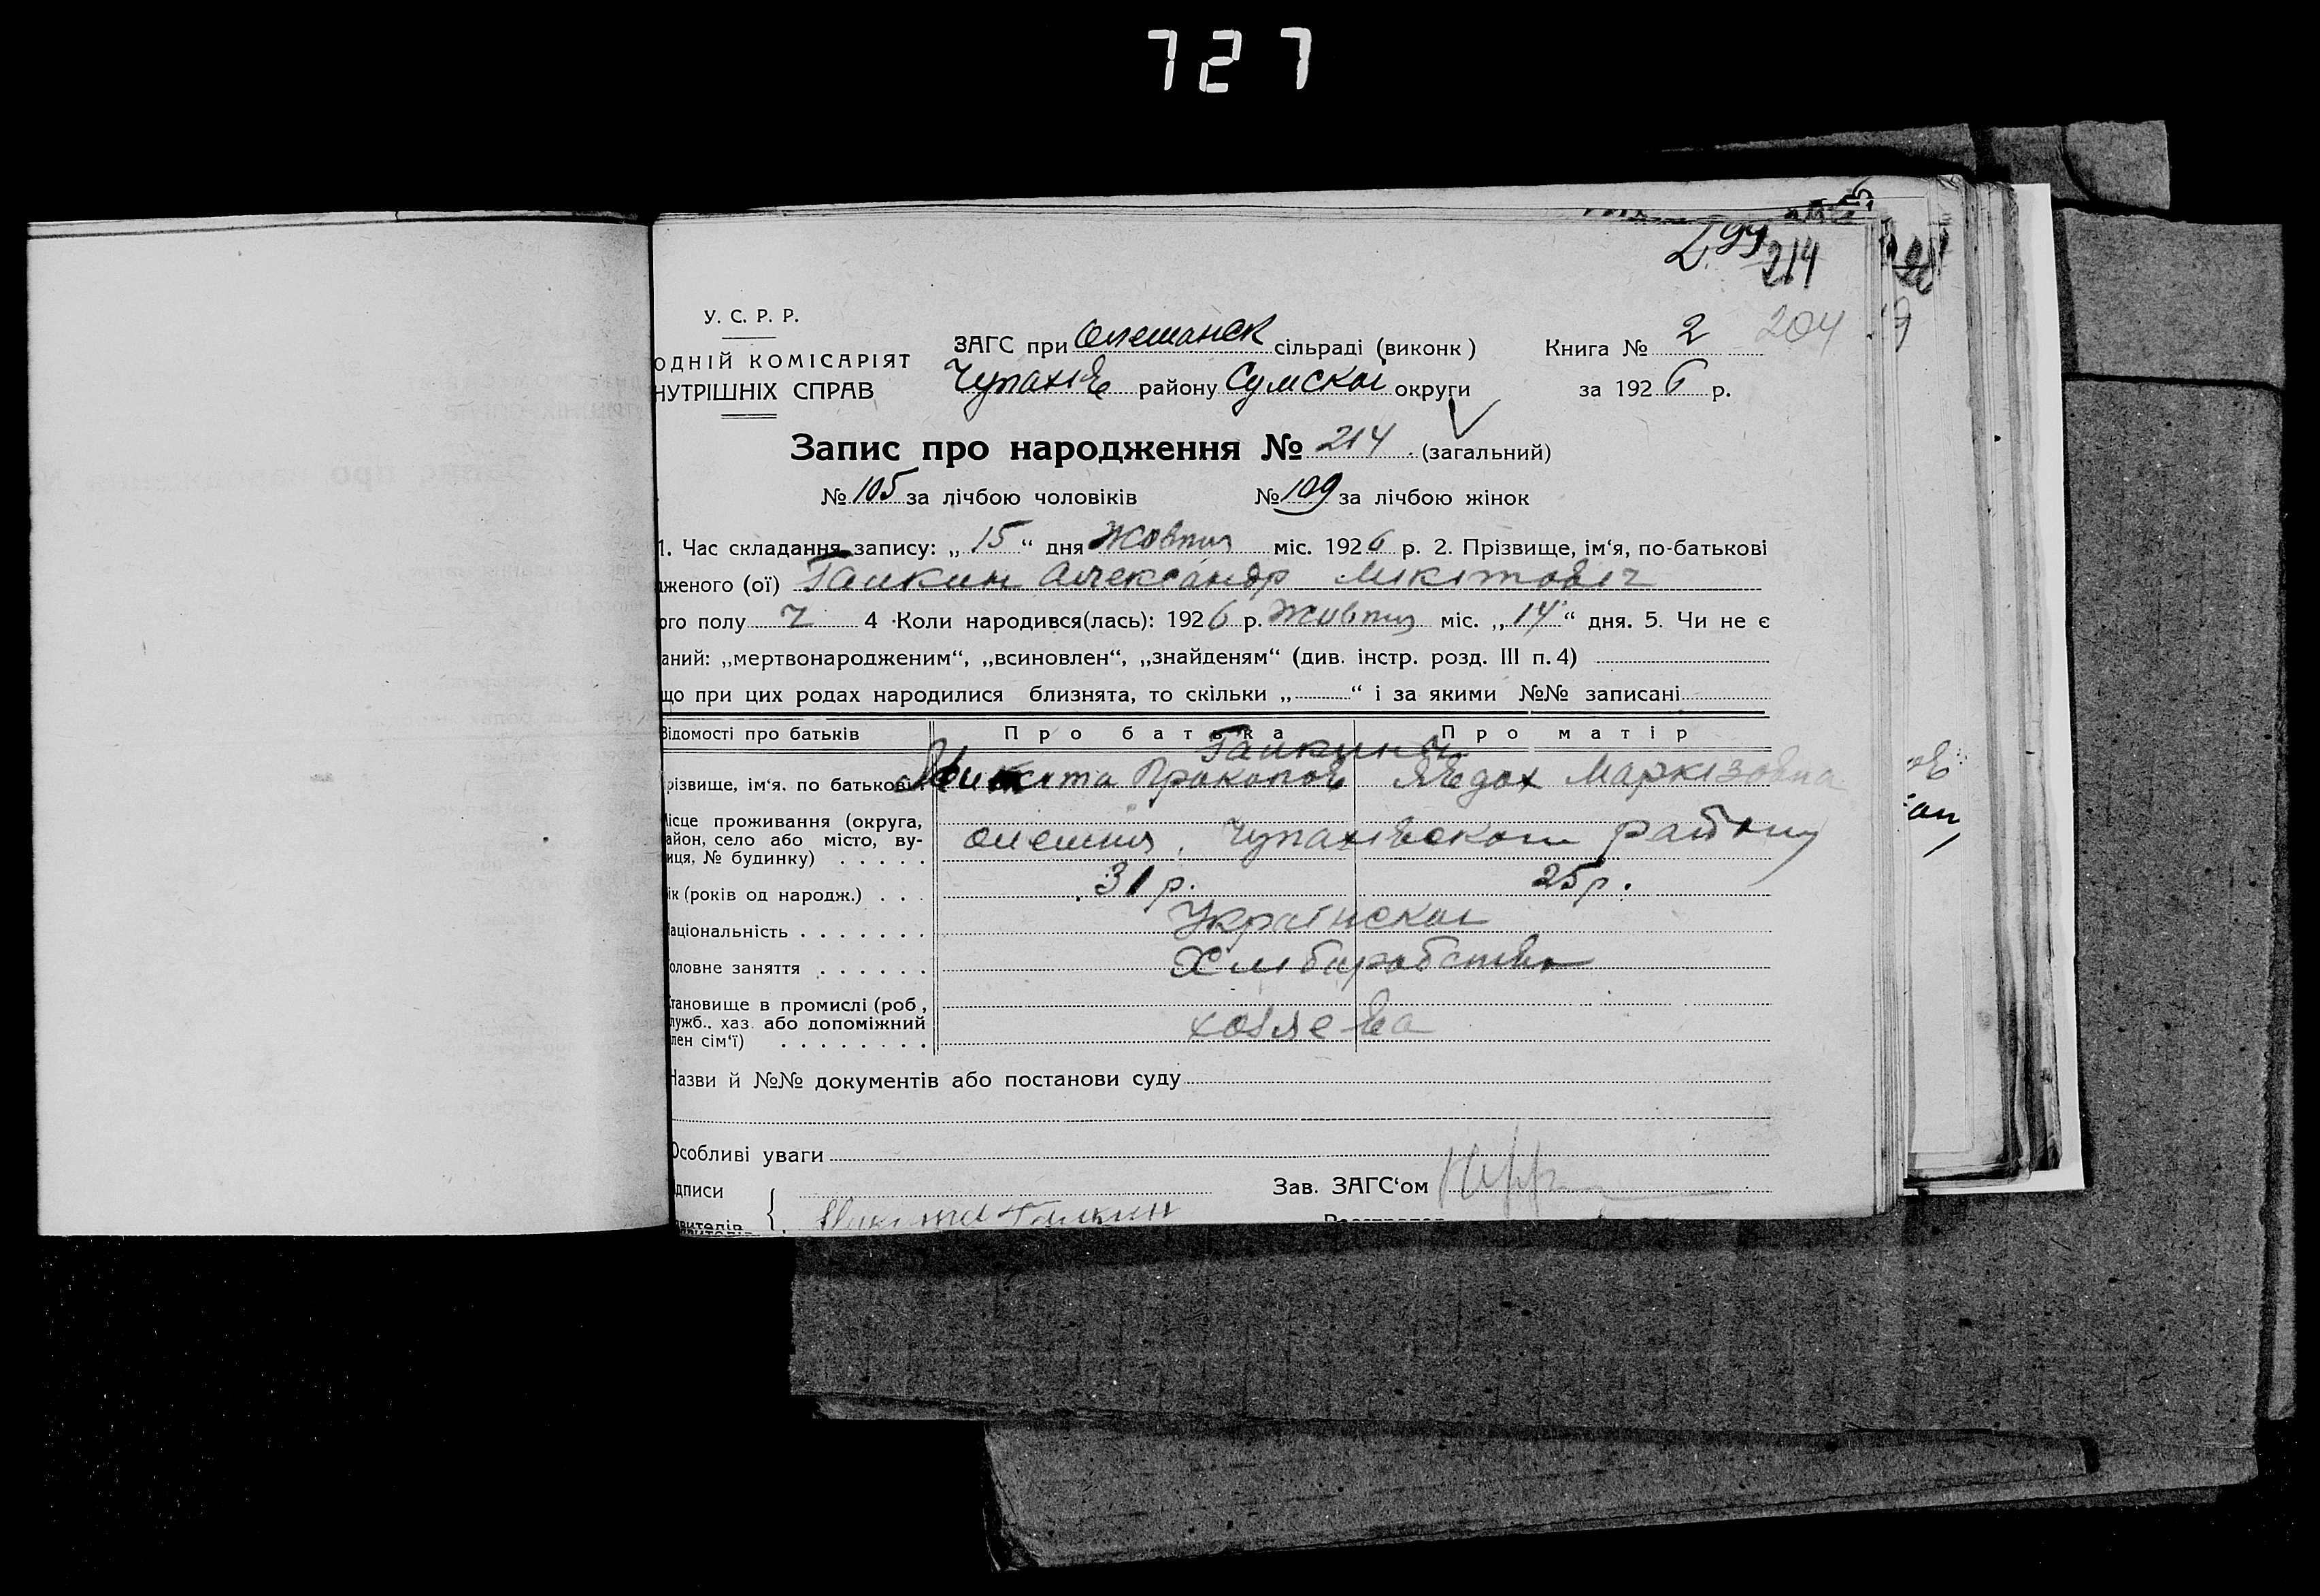 727
294
214
204
У. С. Р. Р.
ОДНІЙ КОМІСАРІЯТ
НУТРІШНІХ СПРАВ
ЗАГС при Олешанск сільраді (виконк) Книга № 2
Чупахів району Сумскої округи за 1926 р.
Запис про народження № 214 (загальний)
№ 105 за лічбою чоловіків № 109 за лічбою жінок
1. Час складання запису: „15“ дня Жовтня міс. 1926 р. 2. Прізвище, ім‘я, по-батькові
дженого (ої) Галкин Олександр Мікітовіч
ого полу ч 4 Коли народився(лась): 1926 р. Жовтня міс. „14“ дня. 5. Чи не є
аний: „мертвонародженим“, „всиновлен“, „знайденям“ (див. інстр. розд. III п. 4)
що при цих родах народилися близнята, то скільки „ “ і за якими №№ записані
Відомості про батьків Про батька Про матір
Галкини
різвище, ім‘я, по батькові Микита Прокопов Явдох
ісце проживання (округа,
айон, село або місто, ву-
иця, № будинку) Олешня, Чупахівского району
ік (років од народж.) 31 р. 25 р.
аціональність Українскої
оловне заняття Хлібаробство
тановище в промислі (роб,
лужб., хаз. або допоміжний
лен сім‘ї)
Назви й №№ документів або постанови суду
Особливі уваги
дписи Зав. ЗАГС‘ом
Микита Галкин